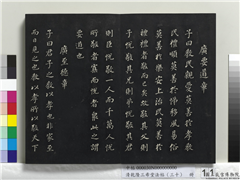 廣要道章
子曰教民親愛莫善於孝教
民禮順莫善於悌移風易俗
莫善於樂安上治民莫善於
禮禮者敬而已矣故敬其父則
子悅敬其兄則弟悅敬其君
則臣悅敬一人而千萬人悅
所敬者寡而悅者眾此之謂
要道也
廣至德章
子曰君子之教以孝也非家至
而日見之也教以孝所以敬天下
清乾隆三希堂法帖(三十) 冊
國立故宮博物院